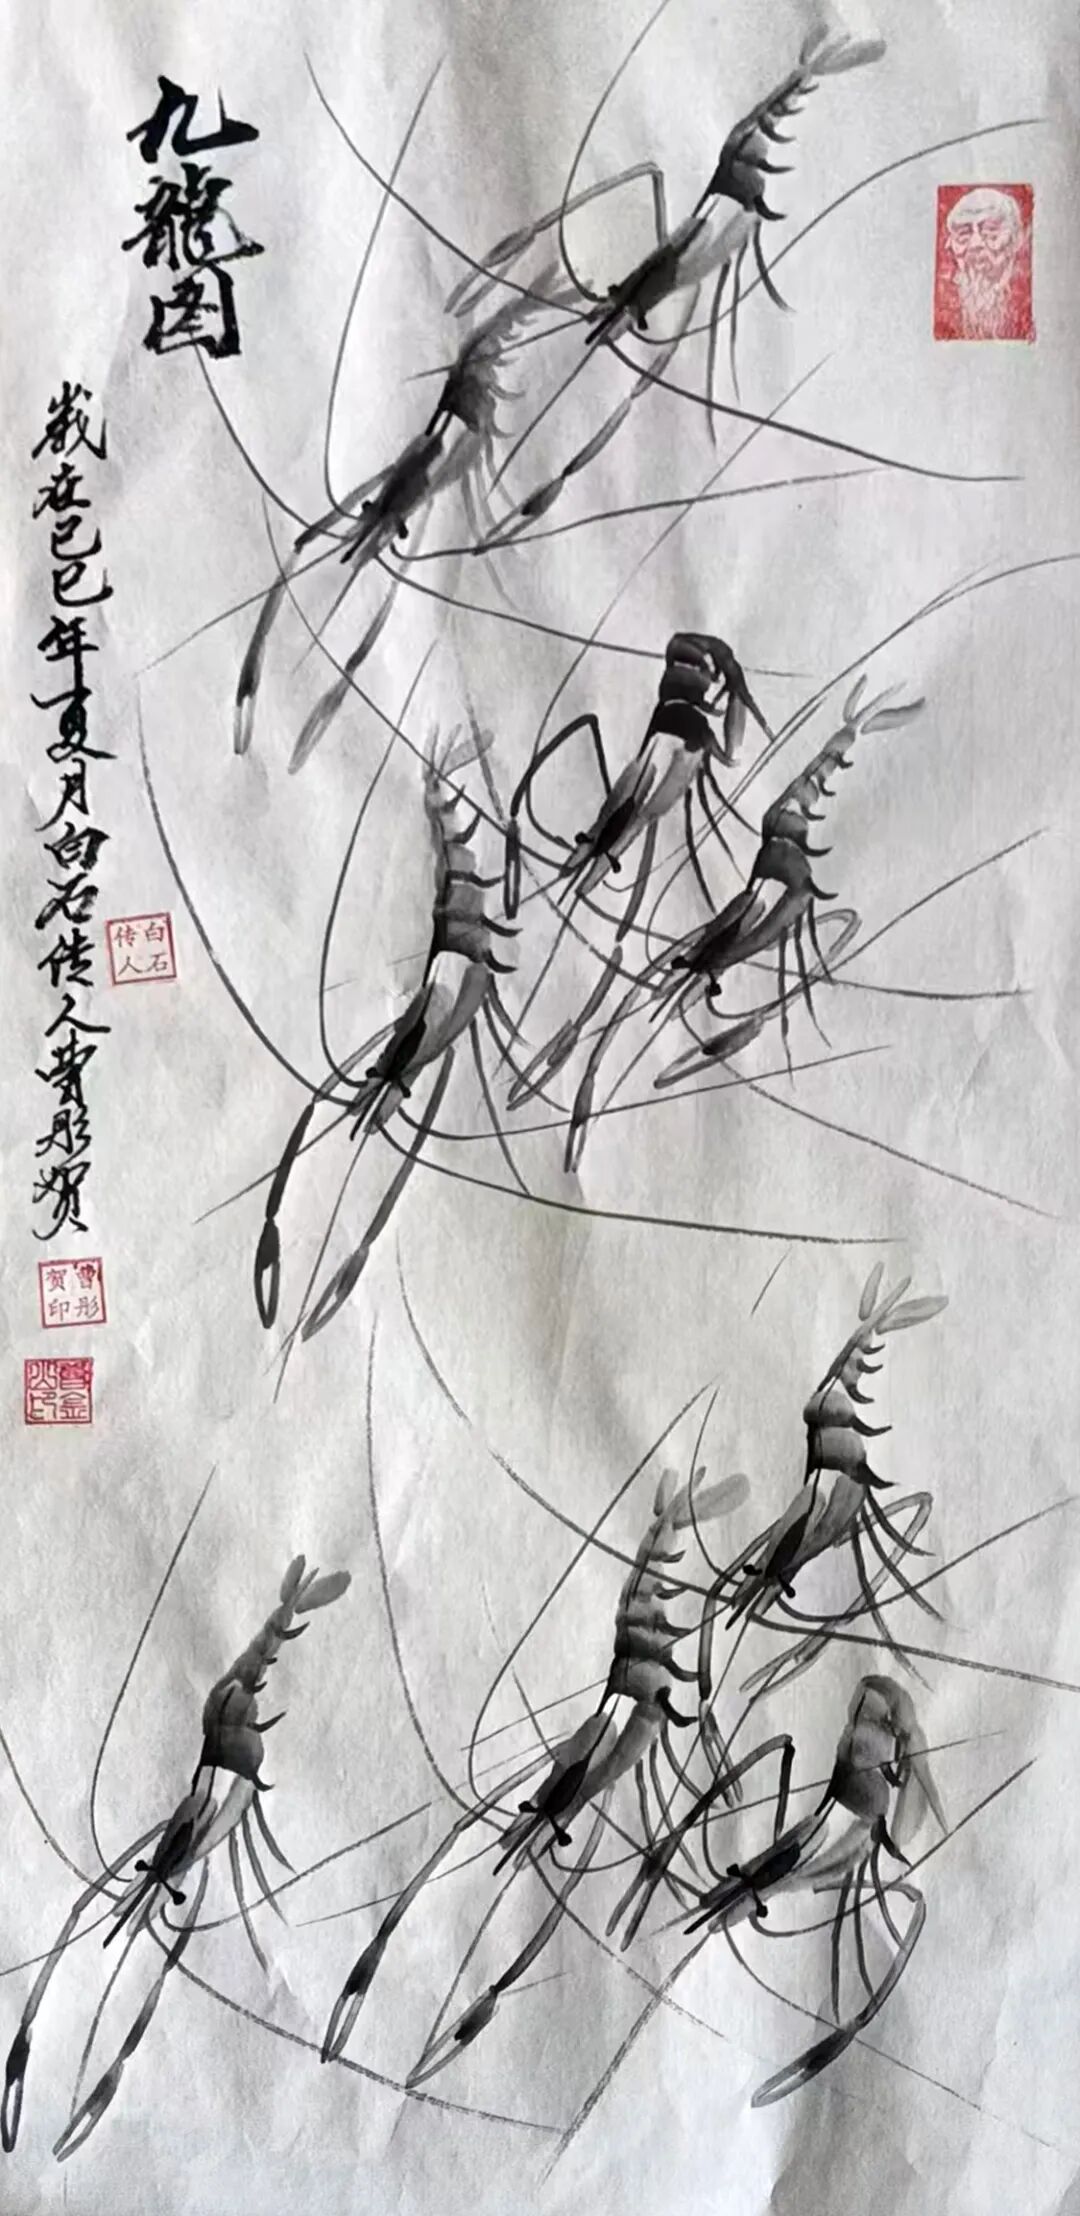 九龍图
歲在己巳年夏月白石传人曹彤贺
白石
传人
曹彤
贺印
曹金
山印